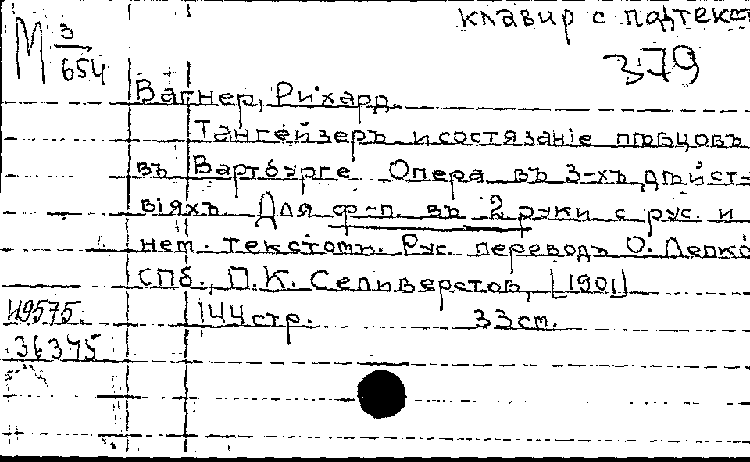 клавир с подтекст
М 3/654
379
Вагнер, Рихард
Тангейзеръ и состязаніе пѣвцовъ
въ Вартбурге Опера въ 3-хъ дѣйст-
віяхъ. Для ф-п. въ 2 руки с рус. и
нем. текстомъ. Рус. переводъ О. Лепко
СПб., П.К. Селиверстов, [1901]
49575. 144 стр. 33 cm.
36375